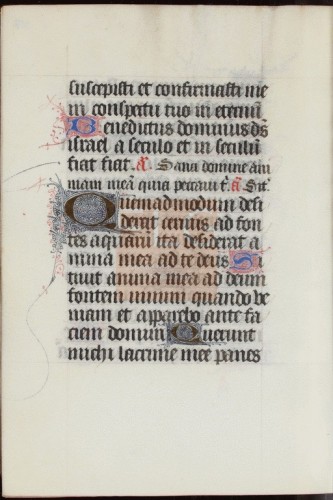 suscepisti et confirmasti me
in conspectu tuo in eternū
Benedictus dominus ds̄
israel a seculo et in seculū
fiat fiat. A. Sana domine am
mam meā quia peccavi t̄. A. Sit̄.
Quemadmodum desi
derat cervus ad fon
tes aquarū ita desiderat a
nima mea ad te deus Si
tivit anima mea ad deum
fontem vivum quando ve
niam et apparebo ante fa
ciem domini Fuerunt
michi lacrime mee panes